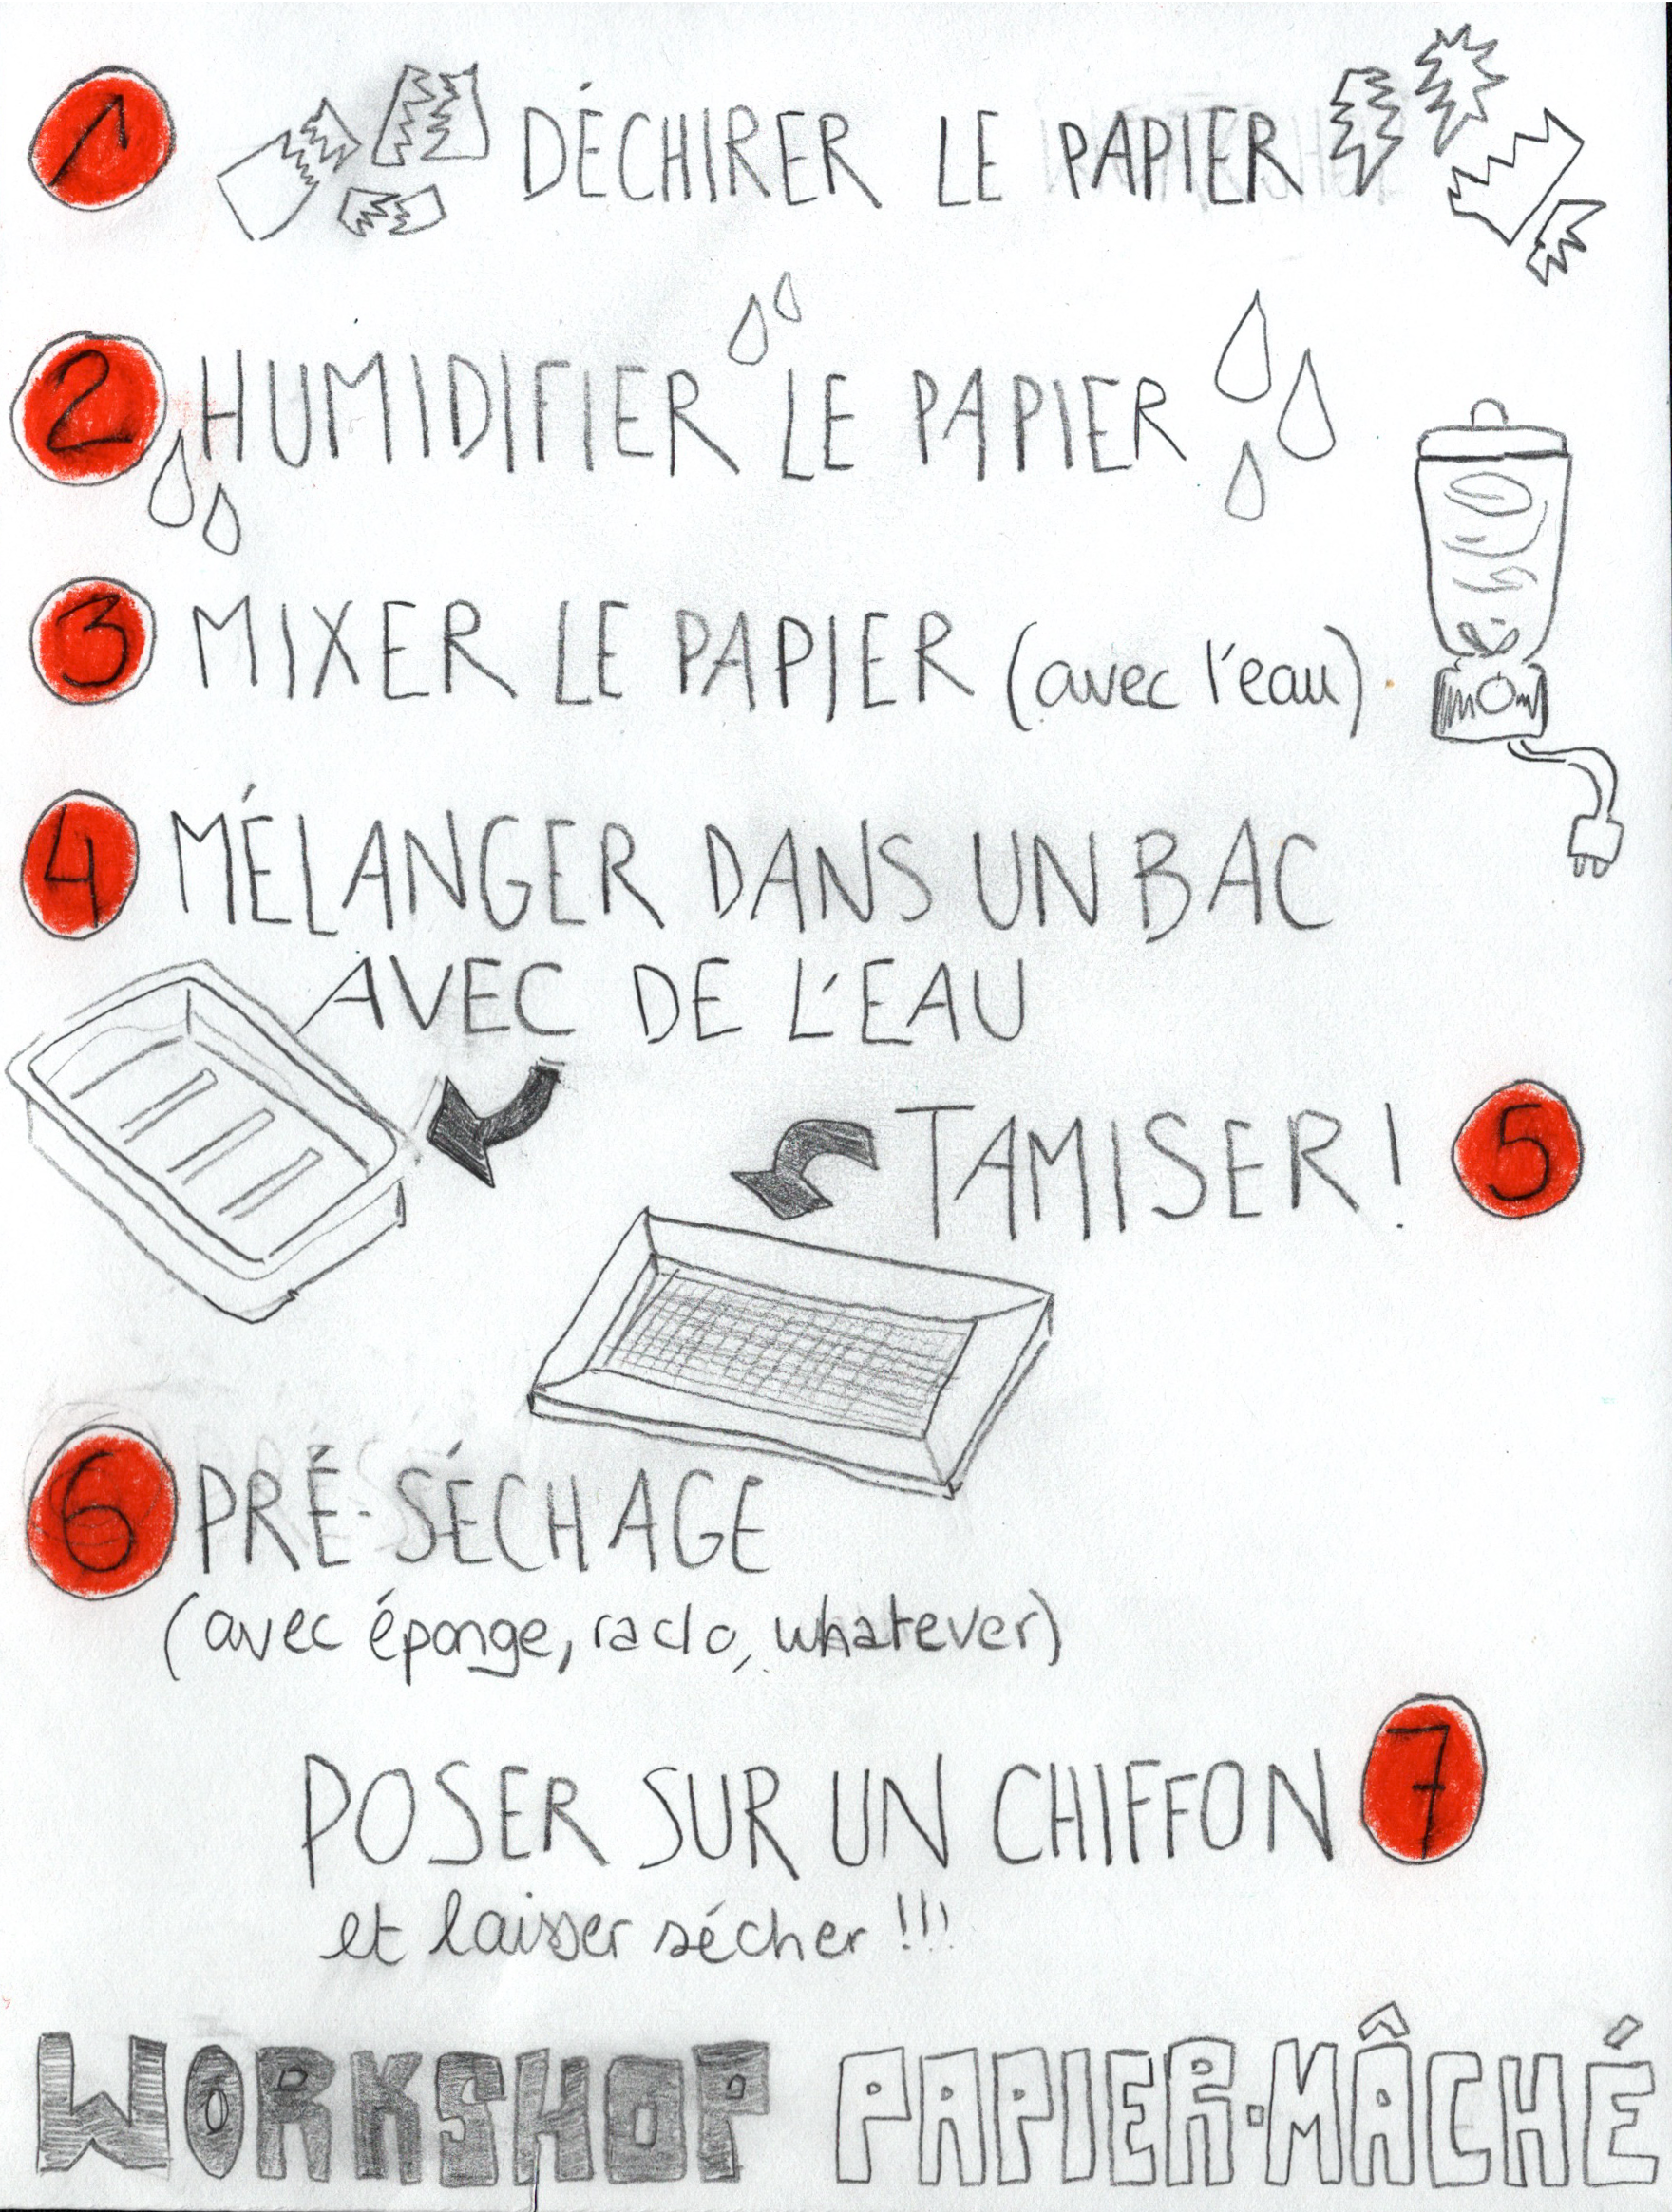 1 DÉCHIRER LE PAPIER
2 HUMIDIFIER LE PAPIER
3 MIXER LE PAPIER (avec l'eau)
4 MÉLANGER DANS UN BAC
AVEC DE L'EAU
TAMISER! 5
6 PRÉ-SÉCHAGE
(avec éponge, raclo, whatever)
POSER SUR UN CHIFFON 7
et laisser sécher !!!
WORKSHOP PAPIER-MÂCHÉ